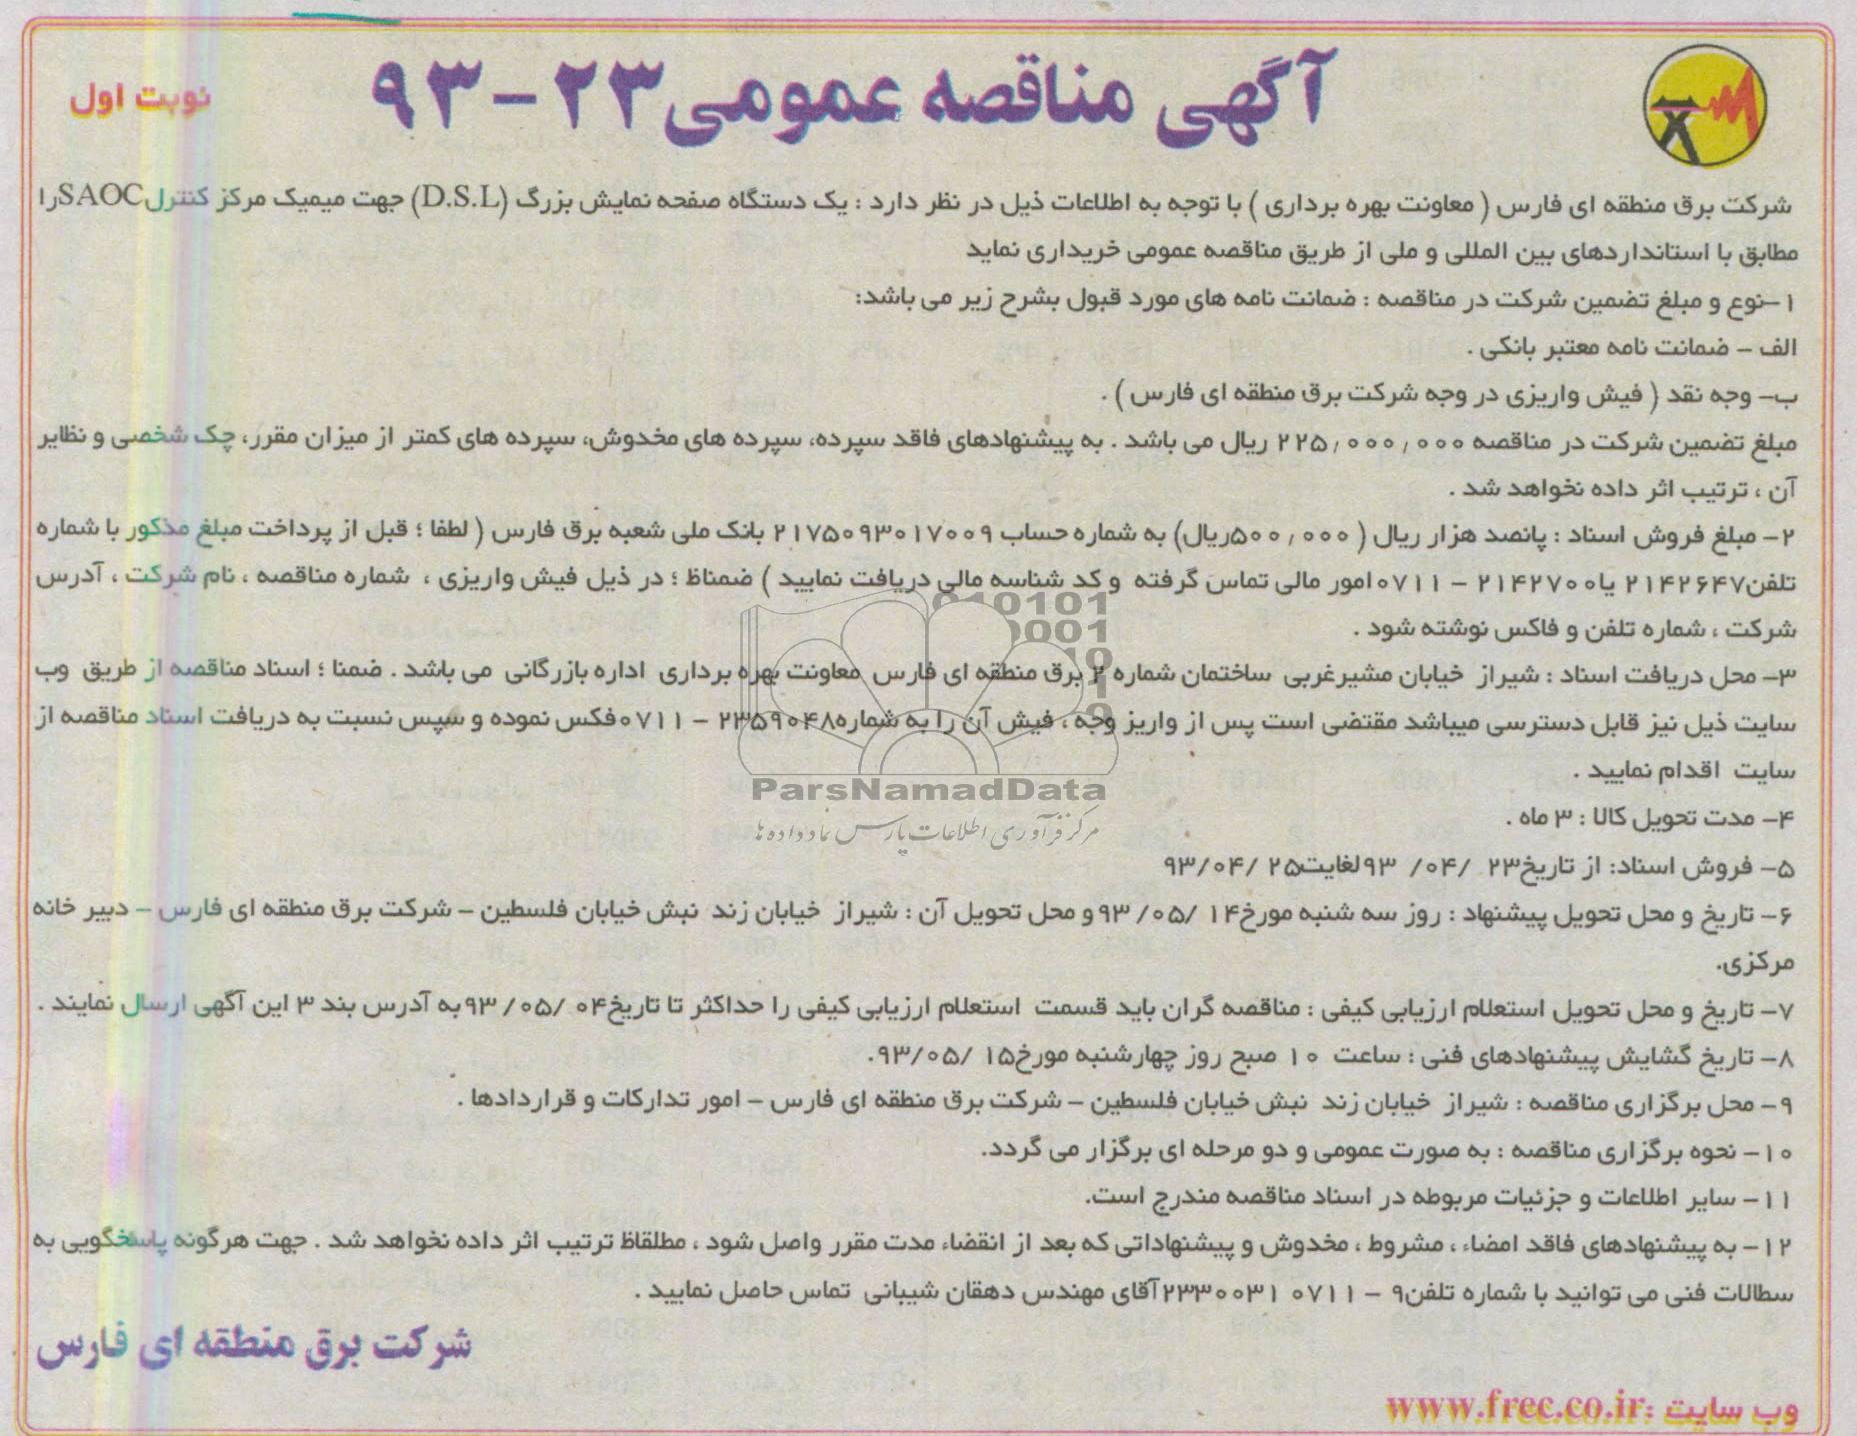 آگهی مناقصه عمومی ۲۳ - ۹۳
نوبت اول
شرکت برق منطقه ای فارس ( معاونت بهره برداری ) با توجه به اطلاعات ذیل در نظر دارد : یک دستگاه صفحه نمایش بزرگ (D.S.L) جهت میمیک مرکز کنترل SAOC را
مطابق با استانداردهای بین المللی و ملی از طریق مناقصه عمومی خریداری نماید
۱- نوع و مبلغ تضمین شرکت در مناقصه : ضمانت نامه های مورد قبول بشرح زیر می باشد:
الف - ضمانت نامه معتبر بانکی .
ب- وجه نقد ( فیش واریزی در وجه شرکت برق منطقه ای فارس ) .
مبلغ تضمین شرکت در مناقصه ۲۲۵٫۰۰۰٫۰۰۰ ریال می باشد . به پیشنهادهای فاقد سپرده، سپرده های مخدوش، سپرده های کمتر از میزان مقرر، چک شخصی و نظایر
آن ، ترتیب اثر داده نخواهد شد .
۲- مبلغ فروش اسناد : پانصد هزار ریال ( ۵۰۰٫۰۰۰ریال) به شماره حساب ۲۱۷۵۰۹۳۰۱۷۰۰۹ بانک ملی شعبه برق فارس ( لطفا ؛ قبل از پرداخت مبلغ مذکور با شماره
تلفن۲۱۴۲۶۴۷ یا۲۱۴۲۷۰۰ - ۰۷۱۱ امور مالی تماس گرفته و کد شناسه مالی دریافت نمایید ) ضمناظ ؛ در ذیل فیش واریزی ، شماره مناقصه ، نام شرکت ، آدرس
شرکت ، شماره تلفن و فاکس نوشته شود .
۳- محل دریافت اسناد : شیراز خیابان مشیرغربی ساختمان شماره ۲ برق منطقه ای فارس معاونت بهره برداری اداره بازرگانی می باشد . ضمنا ؛ اسناد مناقصه از طریق وب
سایت ذیل نیز قابل دسترسی میباشد مقتضی است پس از واریز وجه ، فیش آن را به شماره۲۳۵۹۰۴۸ - ۰۷۱۱فکس نموده و سپس نسبت به دریافت اسناد مناقصه از
سایت اقدام نمایید .
۴- مدت تحویل کالا : ۳ ماه .
۵- فروش اسناد: از تاریخ۲۳ /۰۴/ ۹۳لغایت۲۵ /۹۳/۰۴
۶- تاریخ و محل تحویل پیشنهاد : روز سه شنبه مورخ۱۴ /۰۵/ ۹۳ و محل تحویل آن : شیراز خیابان زند نبش خیابان فلسطین - شرکت برق منطقه ای فارس - دبیر خانه
مرکزی.
۷- تاریخ و محل تحویل استعلام ارزیابی کیفی : مناقصه گران باید قسمت استعلام ارزیابی کیفی را حداکثر تا تاریخ۰۴ /۰۵/ ۹۳به آدرس بند ۳ این آگهی ارسال نمایند .
۸- تاریخ گشایش پیشنهادهای فنی : ساعت ۱۰ صبح روز چهارشنبه مورخ۱۵ /۹۳/۰۵.
۹- محل برگزاری مناقصه : شیراز خیابان زند نبش خیابان فلسطین - شرکت برق منطقه ای فارس - امور تدارکات و قراردادها .
۱۰- نحوه برگزاری مناقصه : به صورت عمومی و دو مرحله ای برگزار می گردد.
۱۱- سایر اطلاعات و جزئیات مربوطه در اسناد مناقصه مندرج است.
۱۲- به پیشنهادهای فاقد امضاء ، مشروط ، مخدوش و پیشنهاداتی که بعد از انقضاء مدت مقرر واصل شود ، مطلقاظ ترتیب اثر داده نخواهد شد . جهت هرگونه پاسخگویی به
سطالات فنی می توانید با شماره تلفن۹ - ۰۷۱۱ ۲۳۳۰۰۳۱ آقای مهندس دهقان شیبانی تماس حاصل نمایید .
شرکت برق منطقه ای فارس
وب سایت :www.frec.co.ir
ParsNamadData
مرکز فرآوری اطلاعات پارس نماد داده ها